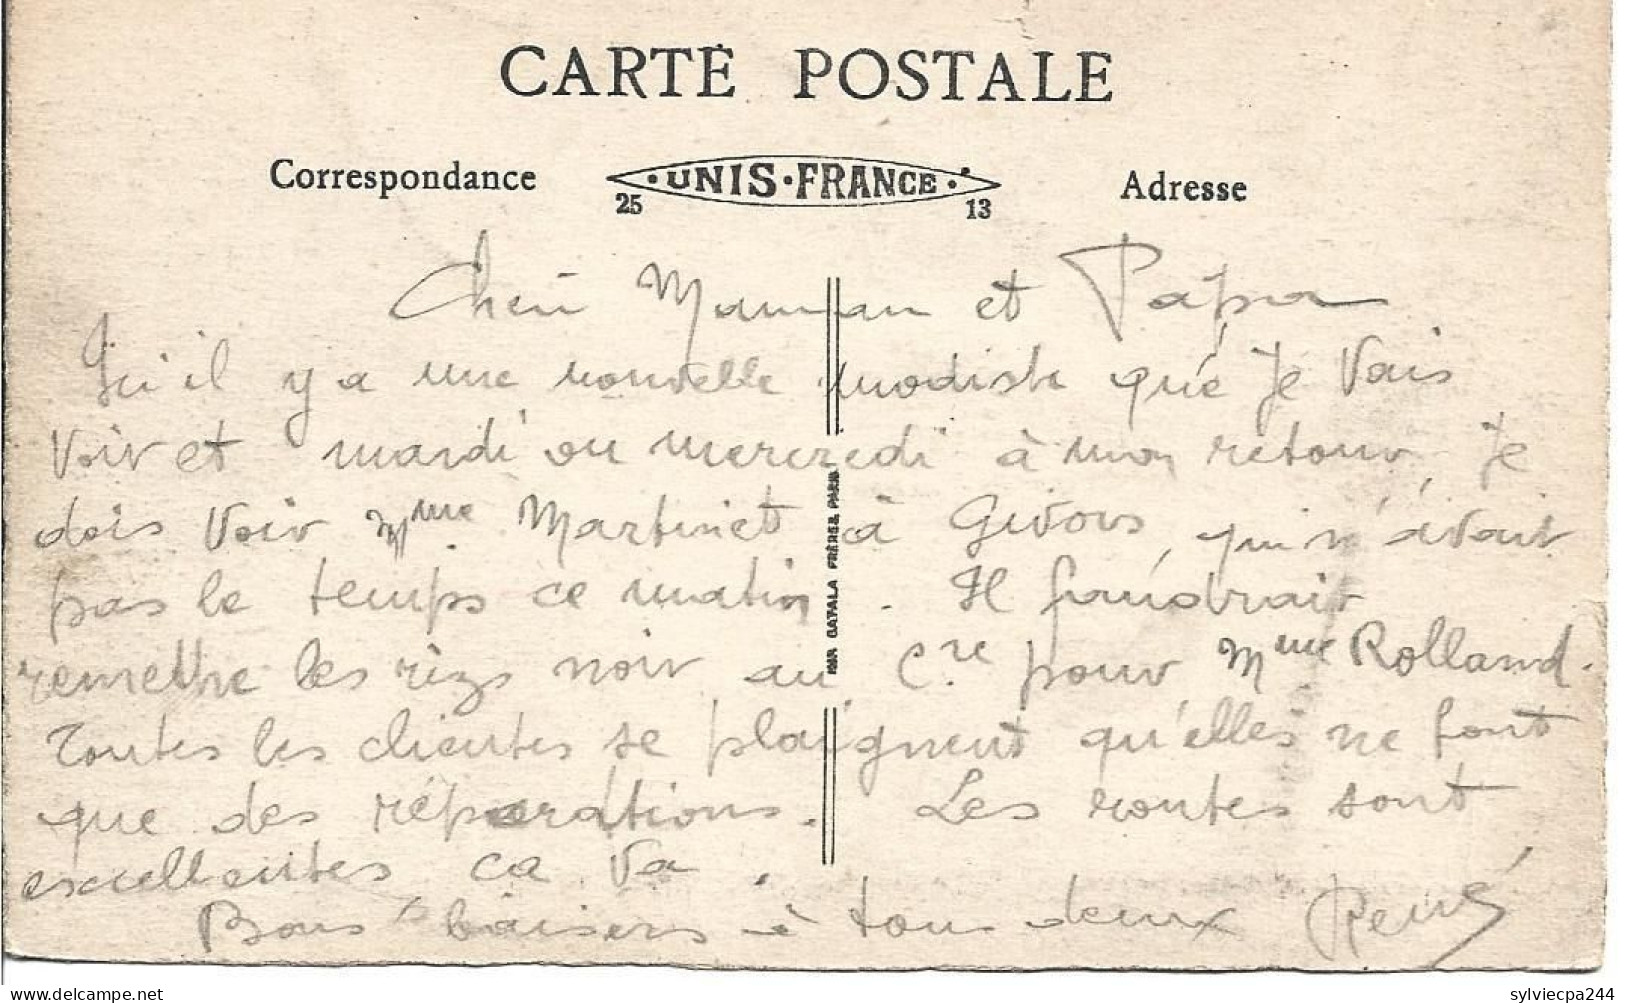 CARTE POSTALE
Correspondance
UNIS-FRANCE
25
13
Adresse
Maman et Papa
il y a une nouvelle modiste que Je Vais
Voir et mardi ou mercredi à mon retour, Je
dois Voir Mme Martinet à Givors, qui n'avait
pas le temps ce matin. Il faudrait
remettre les rizs noir au Cre pour Mme Rolland.
Toutes les clientes se plaignent qu'elles ne font
que des réparations. Les routes sont
excellentes ca Va.
Bons baisers à tous deux René
IMP. CATALA FRÈRES, PARIS
sylviecpa244